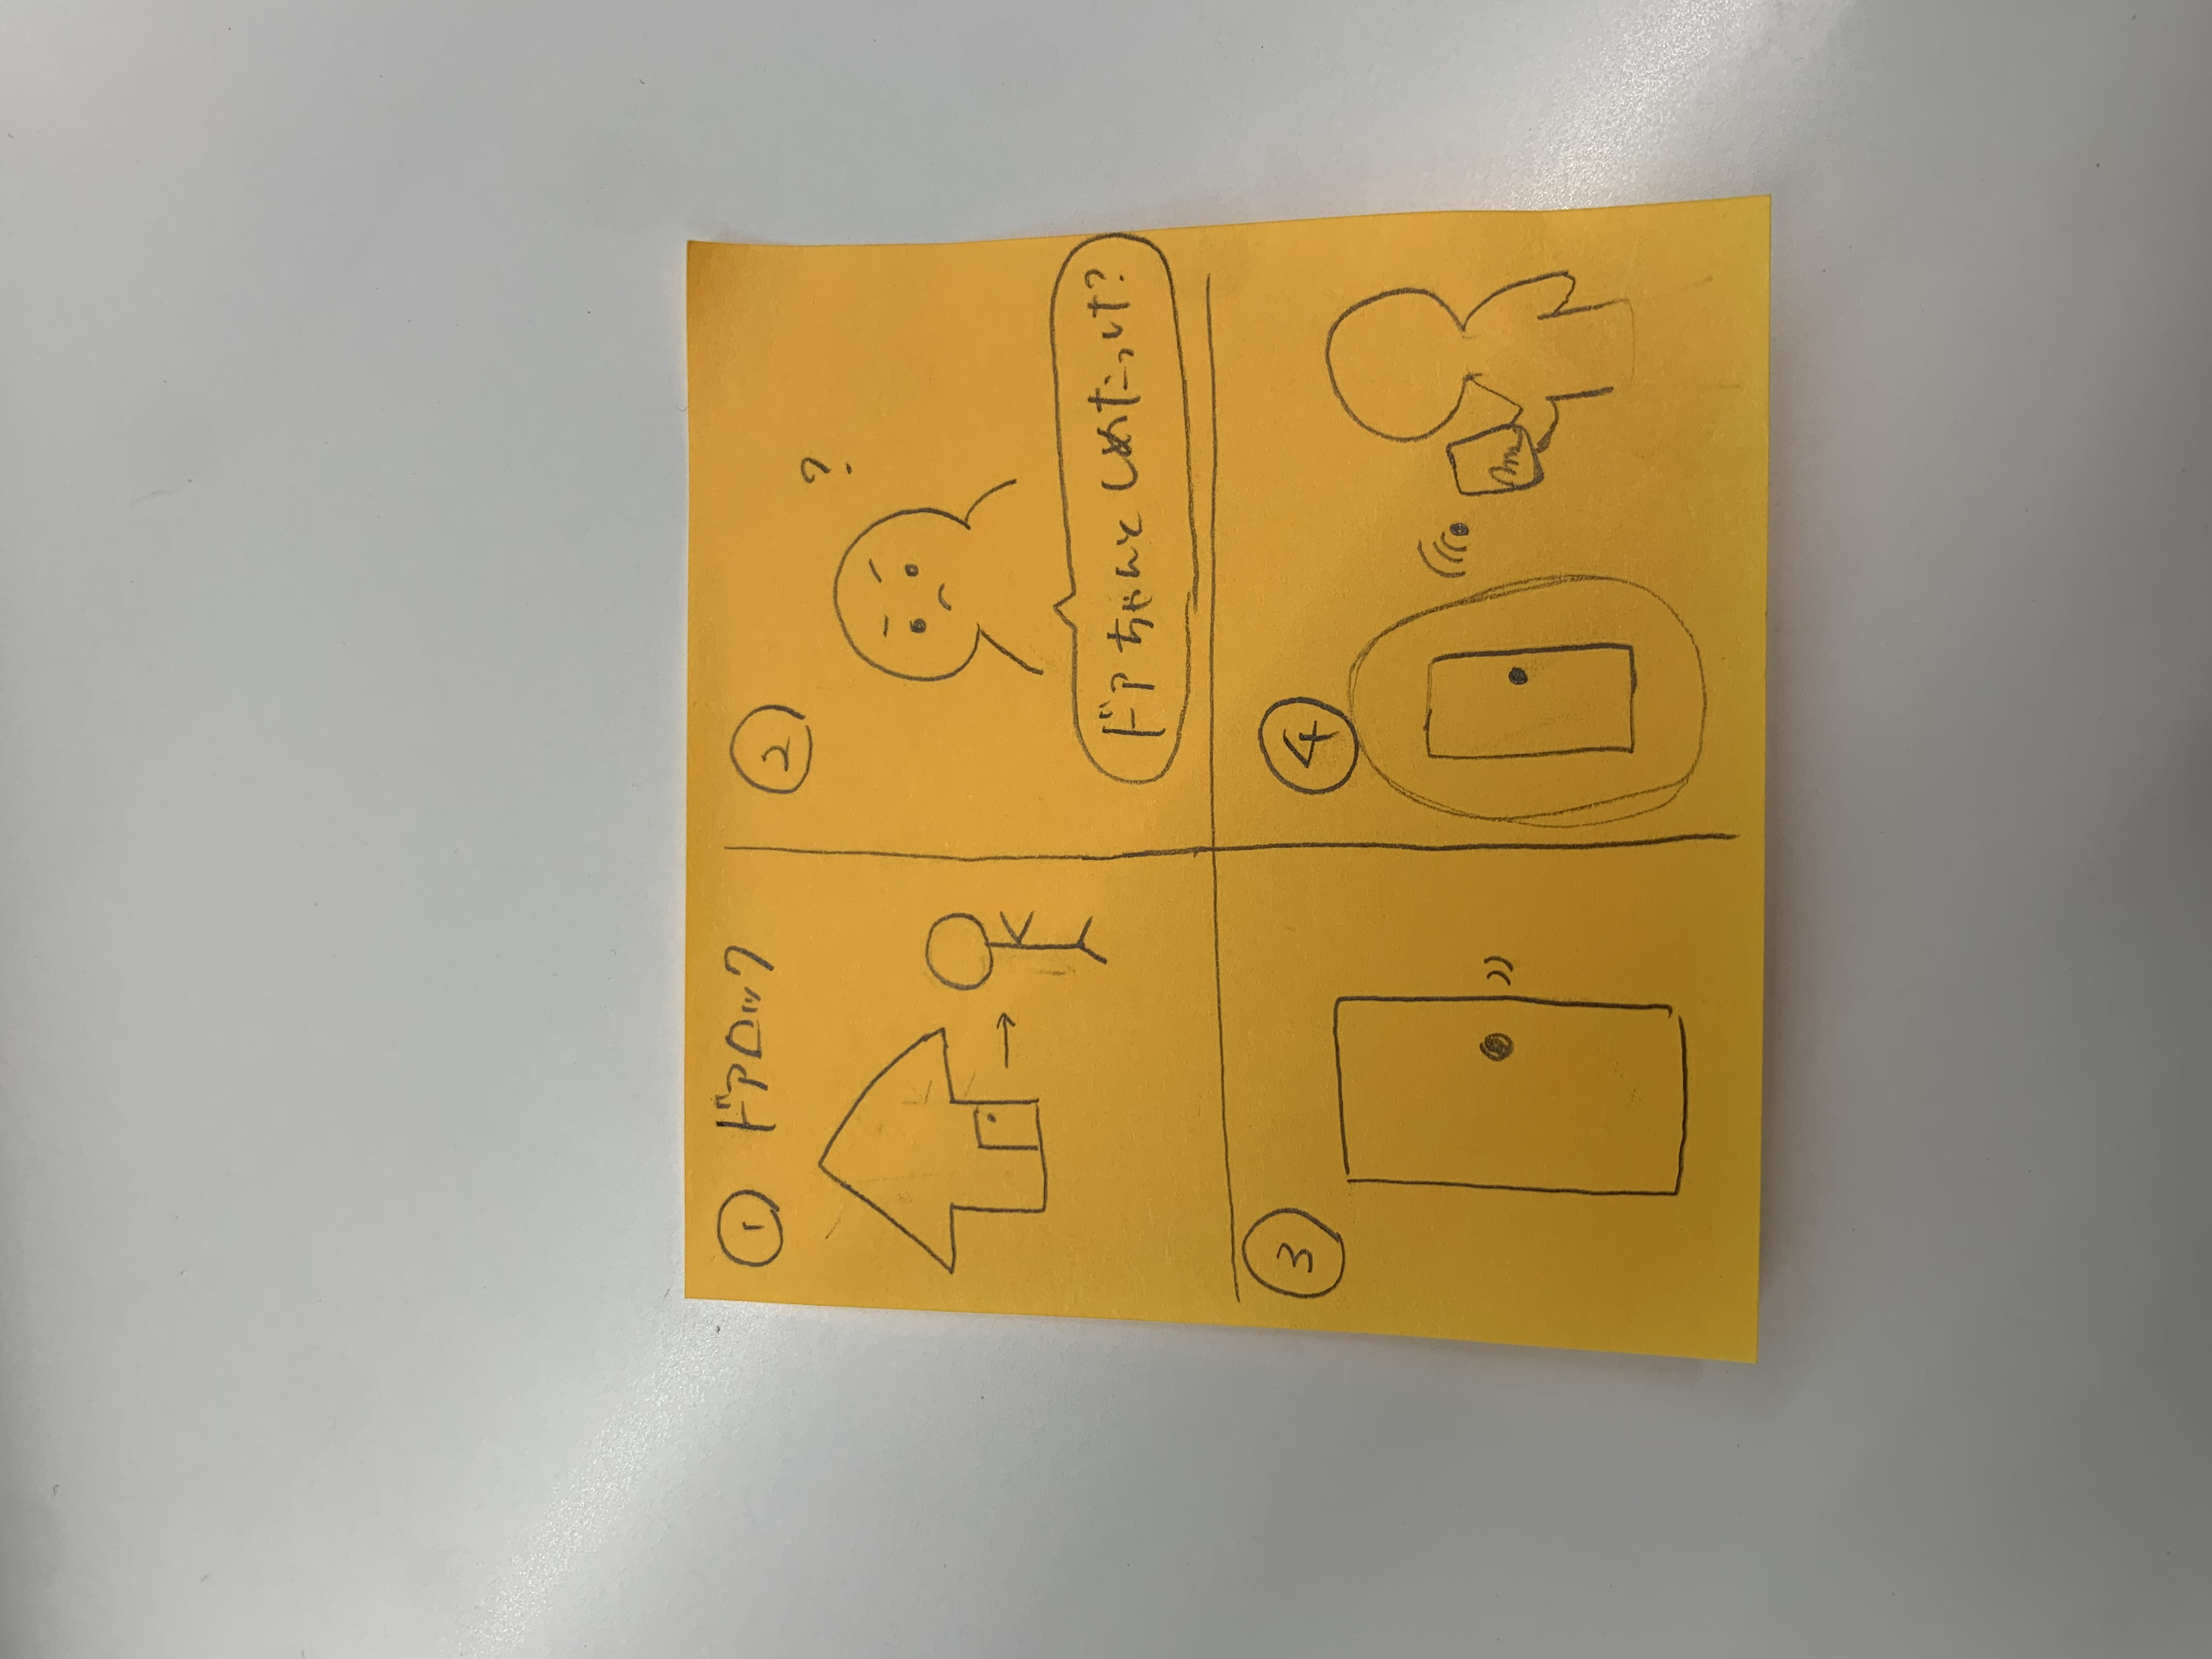 ① ドアロック
②
?
ドアちゃんとしめたっけ?
③
④